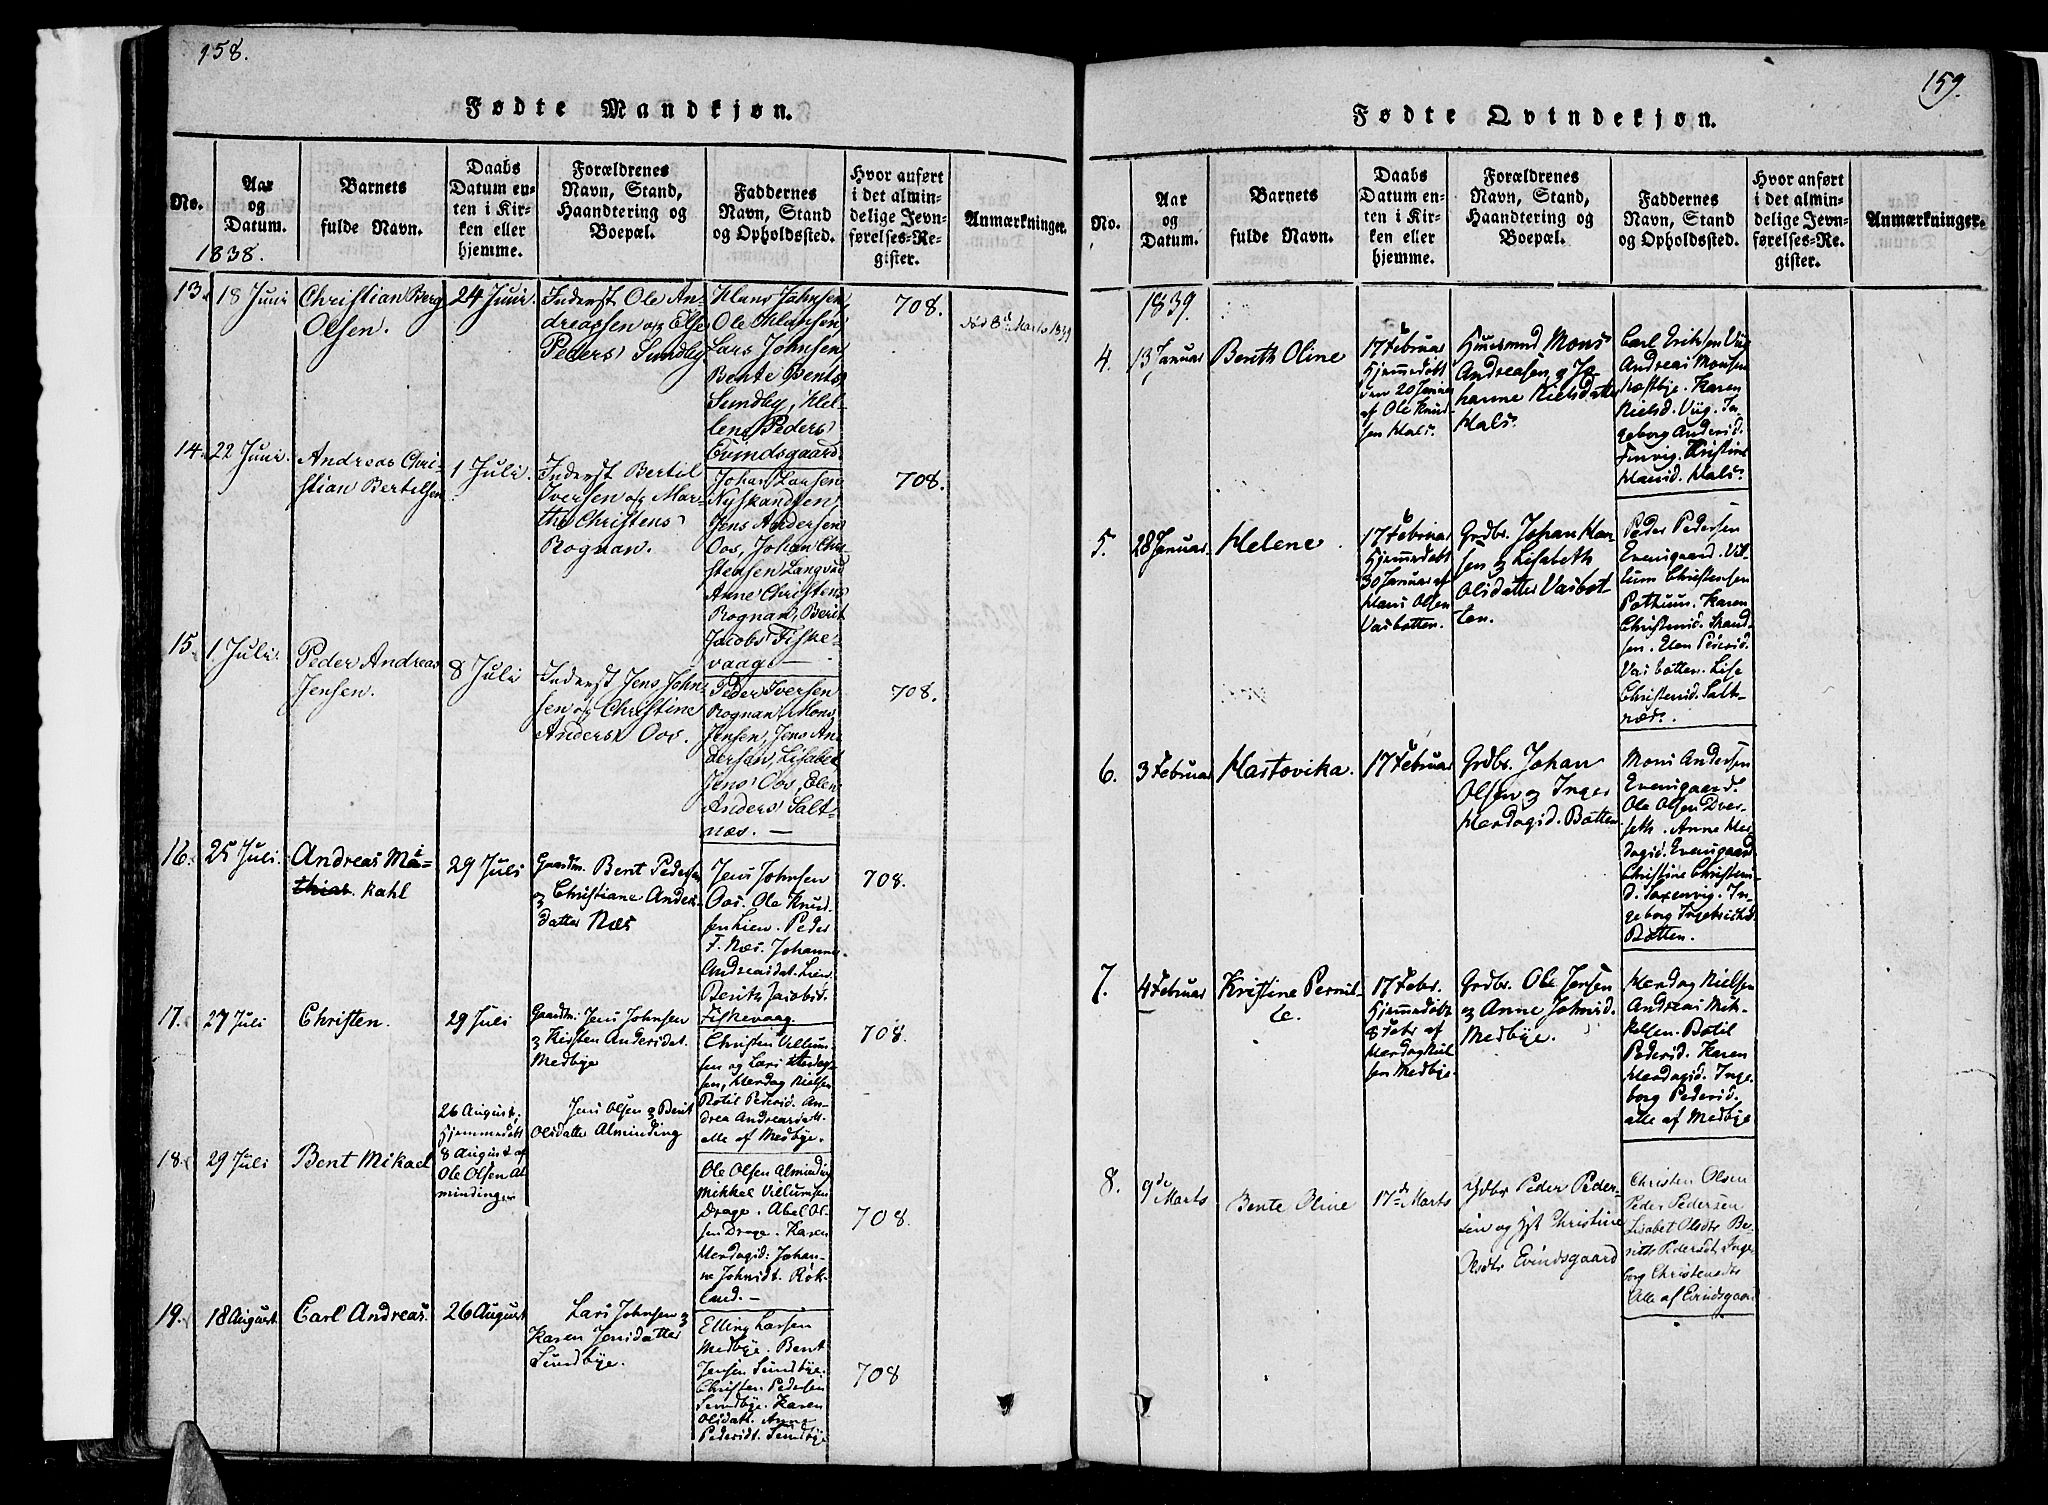 158.
Fødte Mandkjøn.
No.
Aar
og
Datum.
1838.
Barnets
fulde Navn.
Daabs
Datum en-
ten i Kir-
ken eller
hjemme.
Forældrenes
Navn, Stand,
Haandtering og
Boepæl.
Faddernes
Navn, Stand
og Opholdssted.
Hvor anført
i det almin-
delige Jevn-
førelses-Re-
gister.
Anmærkninger.
13.
18 Juni
Christian Berg
Olsen.
24 Juni.
Inderst Ole An-
dreassen og Else
Peders Sundby
Hans Johnsen,
Ole Hansen,
Lars Johnsen
Bente Bents
Sundby, Hel-
lene Peders
Evindsgaard.
708.
død 8de Marts 1839
14.
22 Juni.
Andreas Chri-
stian Bertelsen
1 Juli.
Inderst Bertil
Iversen og Mar-
the Christens
Rognan.
Johan Larsen
Nyskandsen,
Jens Andersen
Oos, Johan Chri-
stensen Langvad
Anne Christens
Rognan, Berit
Jacobs Fiske-
vaag. —
708.
15.
1 Juli.
Peder Andreas
Jensen.
8 Juli
Inderst Jens John-
sen og Christine
Anders Oos.
Peder Iversen
Rognan, Mons
Jensen, Jens An-
dersen, Lisabet
Jens Oos, Elen
Anders Salt-
næs. —
708.
16.
25 Juli.
Andreas Mi-
thias kahl
29 Juli
Gaardm. Bent Pedersen
og Christiane Anders-
datter Næs
Jens Johnsen
Oos. Ole Knud-
sen Lien. Peder
F. Næs. Johanne
Andreasdat. Lien
Berith Jacobsd.
Fiskevaag.
708.
17.
27 Juli
Christen.
29 Juli
Gaardm. Jens Johnsen
og Kirsten Andersdat.
Medbye
Christen Villum-
sen og Lars
sen, Herdag Nielsen
Botil Pedersd. An-
drea Andreasdatt.
alle af Medbye.
708.
18.
29 Juli
Bent Mikael
26 August.
Hjemmedøbt
8 August af
Ole Olsen Al-
mindingen
Jens Olsen og Berit
Olsdatter Alminding
Ole Olsen Alminding
Mikkel Villumsen
Drage. Abel Ol-
sen Drage. Karen
Herdagsd: Johan-
ne Johnsdt. Røk-
land. —
708.
19.
18 August
Carl Andreas.
26 August
Lars Johnsen og
Karen Jensdatter
Sundbye.
Elling Larsen
Medbye. Bent
Jensen Sundbye.
Christen Pedersen
Sundbye. Karen
Olsdatt. Anne
Pedersdt. Sundbye
708
159.
Fødte Qvindekjøn.
No.
Aar
og
Datum.
Barnets
fulde Navn.
Daabs
Datum en-
ten i Kir-
ken eller
hjemme.
Forældrenes
Navn, Stand,
Haandtering og
Boepæl.
Faddernes
Navn, Stand
og Opholdssted.
Hvor anført
i det almin-
delige Jevn-
førelses-Re-
gister.
Anmærkninger.
1839.
4.
13 Januar
Berith Oline
17 Februar
Hjemmedøbt
den 20 Januar
af Ole Knud-
sen Hals.
Huusmand Mons
Andreasen og Jo-
hanne Nielsdatter
Hals.
Carl Eriksen Viig
Andreas Monsen
Næstbye. Karen
Nielsd. Viig. In-
geborg Andersd.
Kristine
Hansd. Hals.
5.
28 Januar.
Helene
17 Februar
Hjemmedøbt
30 Januar af
Hans Olsen
Vasbotten.
Grdbr. Johan Han-
sen og Lisabeth
Olsdatter Vasbot-
ten.
Peder Pedersen
Evensgaard. Vil-
lum Christensen
Pothuus. Karen
Christensd. Skand-
sen. Elen Pedersd.
Vasbotten. Lise
Christensd. Salt-
næs.
6.
3 Februar
Hartovika.
17 Februar
Grdbr. Johan
Olsen og Inger
Herdagsd. Botten
Mons Andersen
Evensgaard.
Ole Olsen Dver-
seth. Anne Her-
dagsd. Evensgaard
Christine Christens-
d. Saxenvig. In-
geborg Ingebrichtsd.
Botten.
7.
4 Februar
Kristine Pernil-
le.
17 Febr.
Hjemmedøbt
8 Febr af
Herdag Niel-
sen Medbye.
Grdbr. Ole Jensen
og Anne Johnsd.
Medbye.
Herdag Nielsen
Andreas Mik-
kelsen. Botil
Pedersd. Karen
Herdagsd. Inge-
borg Pedersd.
alle af Medbye
8.
9de
Marts
Bente Oline
17de Marts
Gdbr Peder Peder-
sen og Hst Christine
Olsdtr Evindsgaard
Christen Olsen
Peder Pedersen
Lisabet Olsdtr Be-
rith Pedersdt, Inge-
borg Christensdtr
Alle af Evindsgaard